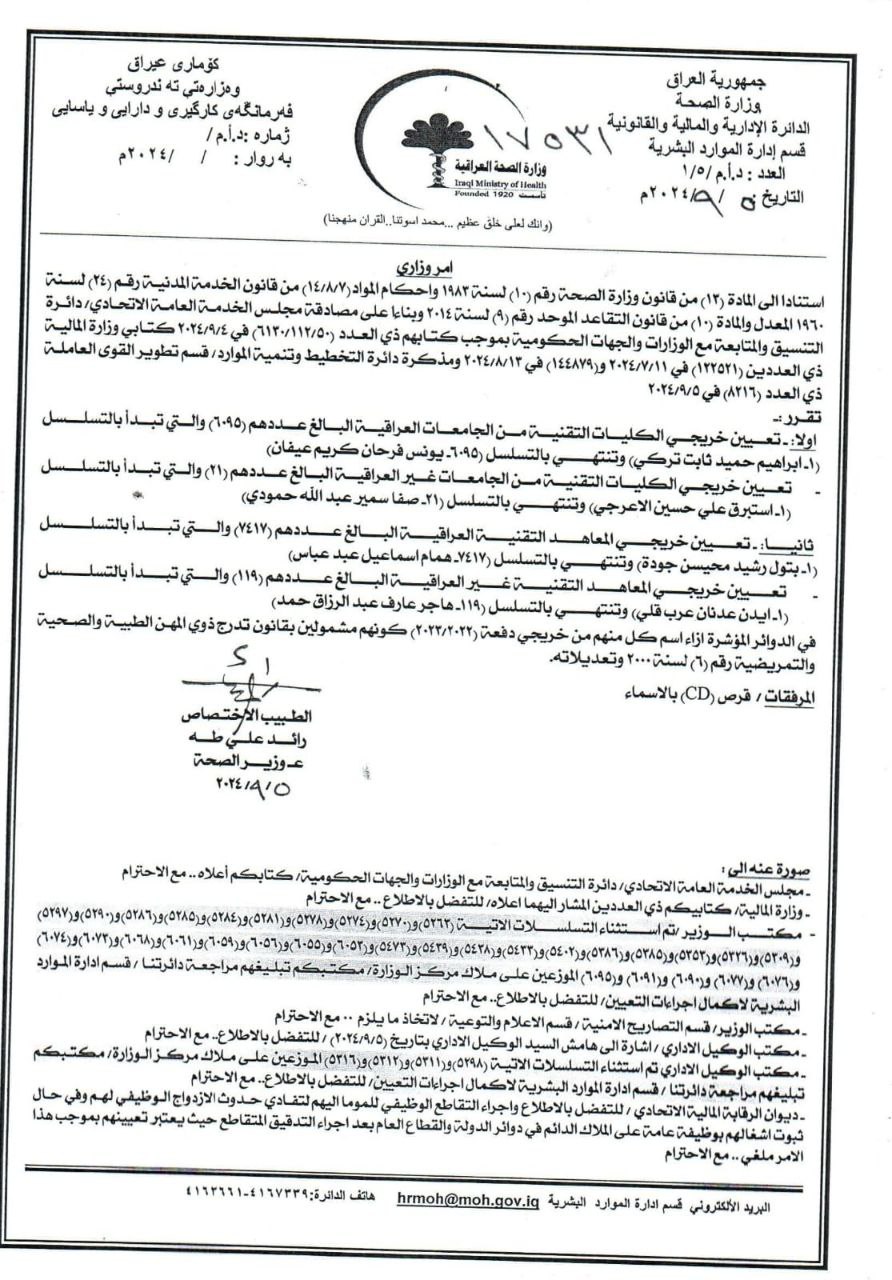 جمهورية العراق
وزارة الصحة
الدائرة الإدارية والمالية والقانونية
قسم إدارة الموارد البشرية
العدد : د.أ.م /١/٥
١٧٥٣١
التاريخ ٥ / ٩ /٢٠٢٤م
وزارة الصحة العراقية
Iraqi Ministry of Health
Founded 1920 تأسست
كۆماری عیراق
وەزارەتی تە ندروستی
فەرمانگەی كارگێری و دارایی و یاسایی
ژمارە : د.أ.م /
بە روار : / /٢٠٢٤م
(وانك لعلى خلق عظيم ...محمد اسوتنا..القران منهجنا)
امر وزاري
استنادا الى المادة (١٢) من قانون وزارة الصحة رقم (١٠) لسنة ١٩٨٣ واحكام المواد (١٤/٨/٧) من قانون الخدمة المدنية رقم (٢٤) لسنة
١٩٦٠ المعدل والمادة (١٠) من قانون التقاعد الموحد رقم (٩) لسنة ٢٠١٤ وبناءا على مصادقة مجلس الخدمة العامة الاتحادي/ دائرة
التنسيق والمتابعة مع الوزارات والجهات الحكومية بموجب كتابهم ذي العدد (٦١٣٠/١١٢/٥٠) في ٢٠٢٤/٩/٤ كتابي وزارة المالية
ذي العددين (١٢٢٥٢١) في ٢٠٢٤/٧/١١ و(١٤٤٨٧٩) في ٢٠٢٤/٨/١٣ ومذكرة دائرة التخطيط وتنمية الموارد/ قسم تطوير القوى العاملة
ذي العدد (٨٢١٦) في ٢٠٢٤/٩/٥
تقرر :ـ
اولا: ـ تعيين خريجي الكليات التقنية من الجامعات العراقية البالغ عددهم (٦٠٩٥) والتي تبدأ بالتسلسل
(١ـ ابراهيم حميد ثابت تركي) وتنتهي بالتسلسل (٦٠٩٥ـ يونس فرحان كريم عيفان)
- تعيين خريجي الكليات التقنية من الجامعات غير العراقية البالغ عددهم (٢١) والتي تبدأ بالتسلسل
(١ـ استبرق علي حسين الاعرجي) وتنتهي بالتسلسل (٢١ـ صفا سمير عبد الله حمودي)
ثانيا: ـ تعيين خريجي المعاهد التقنية العراقية البالغ عددهم (٧٤١٧) والتي تبدأ بالتسلسل
(١ـ بتول رشيد محيسن جودة) وتنتهي بالتسلسل (٧٤١٧ـ همام اسماعيل عبد عباس)
- تعيين خريجي المعاهد التقنية غير العراقية البالغ عددهم (١١٩) والتي تبدأ بالتسلسل
(١ـ ايدن عدنان عرب قلي) وتنتهي بالتسلسل (١١٩ـ هاجر عارف عبد الرزاق حمد)
في الدوائر المؤشرة ازاء اسم كل منهم من خريجي دفعة (٢٠٢٣/٢٠٢٢) كونهم مشمولين بقانون تدرج ذوي المهن الطبية والصحية
والتمريضية رقم (٦) لسنة ٢٠٠٠ وتعديلاته.
المرفقات / قرص (CD) بالاسماء
الطبيب الاختصاص
رائد علي طه
ع.وزير الصحة
٢٠٢٤/٩/٥
صورة عنه الى :
ـ مجلس الخدمة العامة الاتحادي/ دائرة التنسيق والمتابعة مع الوزارات والجهات الحكومية/ كتابكم أعلاه .. مع الاحترام
ـ وزارة المالية/ كتابيكم ذي العددين المشار اليهما اعلاه/ للتفضل بالاطلاع .. مع الاحترام
- مكتب الوزير /تم استثناء التسلسلات الاتية (٥٢٦٣)و(٥٢٧٠)و(٥٢٧٤)و(٥٢٧٨)و(٥٢٨١)و(٥٢٨٤)و(٥٢٨٥)و(٥٢٨٦)و(٥٢٩٠)و(٥٢٩٧)
و(٥٣٠٩)و(٥٣٢٦)و(٥٣٥٣)و(٥٣٨٥)و(٥٣٨٦)و(٥٤٠٢)و(٥٤٣٣)و(٥٤٣٨)و(٥٤٣٩)و(٥٤٧٣)و(٦٠٥٣)و(٦٠٥٥)و(٦٠٥٦)و(٦٠٥٩)و(٦٠٦١)و(٦٠٦٨)و(٦٠٧٣)و(٦٠٧٤)
و(٦٠٧٦)و(٦٠٧٧)و(٦٠٩٠)و(٦٠٩١)و(٦٠٩٥) الموزعين على ملاك مركز الوزارة/ مكتبكم تبليغهم مراجعة دائرتنا / قسم ادارة الموارد
البشرية لاكمال اجراءات التعيين/ للتفضل بالاطلاع.. مع الاحترام
ـ مكتب الوزير/ قسم التصاريح الامنية / قسم الاعلام والتوعية / لاتخاذ ما يلزم .. مع الاحترام
ـ مكتب الوكيل الاداري / اشارة الى هامش السيد الوكيل الاداري بتاريخ (٢٠٢٤/٩/٥) / للتفضل بالاطلاع.. مع الاحترام
ـ مكتب الوكيل الاداري تم استثناء التسلسلات الاتية (٥٢٩٨)و(٥٣١١)و(٥٣١٢)و(٥٣١٦) الموزعين على ملاك مركز الوزارة/ مكتبكم
تبليغهم مراجعة دائرتنا/ قسم ادارة الموارد البشرية لاكمال اجراءات التعيين/ للتفضل بالاطلاع.. مع الاحترام
ـ ديوان الرقابة المالية الاتحادي / للتفضل بالاطلاع واجراء التقاطع الوظيفي للموما اليهم لتفادي حدوث الازدواج الوظيفي لهم وفي حال
ثبوت اشغالهم بوظيفة عامة على الملاك الدائم في دوائر الدولة والقطاع العام بعد اجراء التدقيق المتقاطع حيث يعتبر تعيينهم بموجب هذا
الامر ملغي .. مع الاحترام
البريد الألكتروني قسم ادارة الموارد البشرية hrmoh@moh.gov.iq هاتف الدائرة:٤١٦٧٣٣٩-٤١٦٣٦٦١